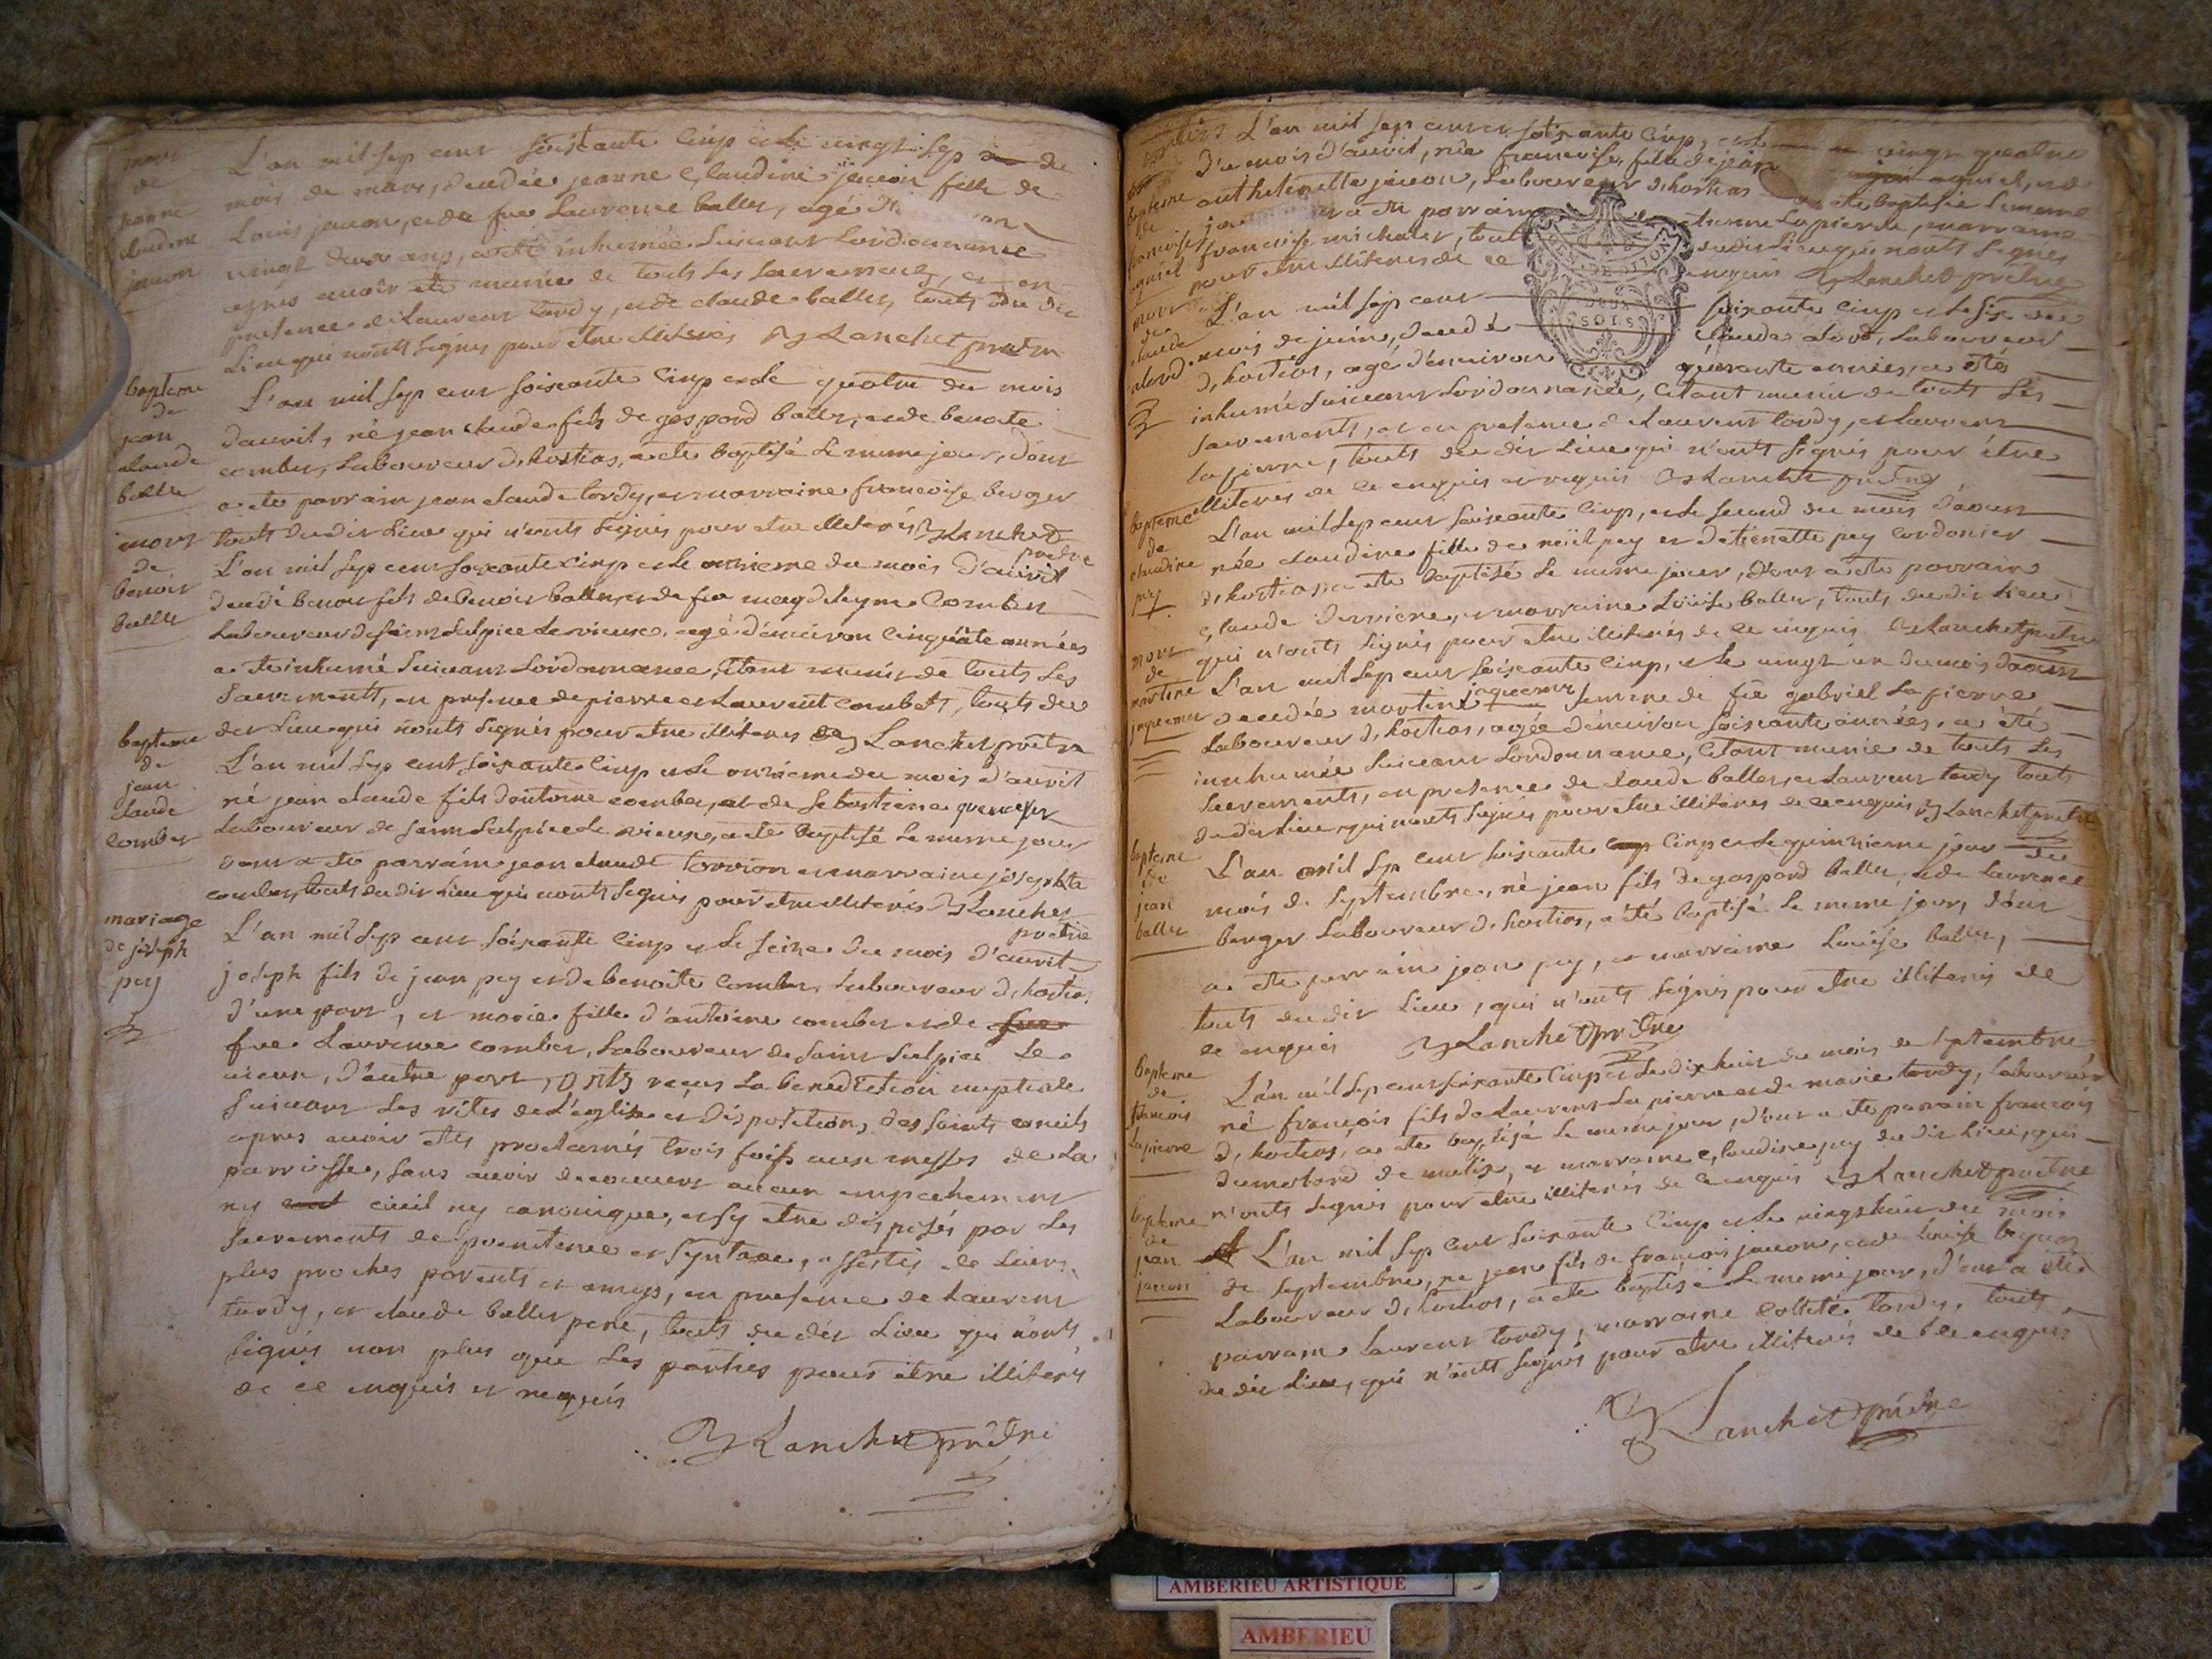 mort
de
jeanne
claudine
jacon
L'an mil sep cent soixante cinp et le vingt sep du
mois de mars, decedée jeanne claudine jacon fille de
Louis jacon, et de fue Laurence ballet, agé
vingt deux ans, a eté inhumée suivant Lordonnance
apres avoir ete munie de touts les sacrements, et en
presence de Laurent tardy, et de claude ballet, touts du dit
Lieu qui nonts signes pour etre illiterés Lanchet pretre
bapteme
de
jean
claude
ballet
L'an mil sep cent soixante cinp et le quatre du mois
d'avril, né jean claude fils de gaspard ballet, et de benoite
combet, Laboureur d,hostias, a ete baptisé le meme jour, dont
a ete parrain jean claude tardy, et marraine francoise berger
touts du dit Lieu qui n'onts signés pour etre illiterés Lanchet
pretre
mort
de
benoit
ballet
L'an mil sep cent soixante cinp et le onzieme du mois d'avril
decedé benoit fils de benoit ballet, et de fue magdeleyne Combet
Laboureur de saint sulpice le vieux, agé d'environ cinquante années
a ete inhumé suivant Lordonnance, etant munis de touts les
sacrements, en presence de pierre et Laurent combet, touts du
dit Lieu qui nonts signés pour etre illiteres Lanchet pretre
bapteme
de
jean
claude
Combet
L'an mil sep cent soixante cinp et le onzieme du mois d'avril
né jean claude fils d'antoine combet, et de sebastiene
Laboureur de saint sulpice le vieux, a ete baptisé le meme jour
dont a ete parrain jean claude et marraine josephte
combet, touts du dit Lieu qui nonts signés pour etre illiterés Lanchet
pretre
mariage
de joseph
pey
L'an mil sep cent soixante cinp et le seize du mois d'avril
joseph fils de jean pey et de benoite Combet Laboureur d,hostias
d'une part, et marie fille d'antoine combet et de fue
fue Laurence combet, Laboureur de saint sulpice le
vieux, d'autre part, onts reçus La benediction nuptiale
suivant les rites de L'eglise et disposition, des saints conciles
apres avoir etes proclamés trois fois aux messes de La
parroisse, sans avoir decouvert aucun empechement
ny civil ny canonique, et sy etre disposés par les
sacrements de poenitence et , assistés de Leurs
plus proches parents et amys, en presence de Laurent
tardy, et claude ballet pere, touts du dit Lieu qui nonts
signés non plus que les parties pour etre illiterés
de ce enquis et requis
Lanchet pretre
L'an mil sep cent soixante cinp, et le vingt quatre
du mois d'avril, née francoise, fille de jean aguiel, et de
anthelmette jacon, Laboureur d,hostias a ete baptisée le meme
a ete parrain Lapierre, marraine
francoise michalet, tout dudit Lieu qui nonts signes
pour etre illiteres de ce enquis Lanchet pretre
bapteme
de
francoise
aguiel
mort
de
claude
L'an mil sep cent soixante cinp et le six du
mois de juin, decedé claude , Laboureur
d,hostias, agé d'environ quarante années, a eté
inhumé suivant Lordonnance, etant munie de touts les
sacrements, et en presence de Laurent tardy, et Laurent
Lapierre, touts du dit Lieu qui n'onts signés pour être
illiteres de ce enquis et requis Lanchet pretre
bapteme
de
claudine
pey
L'an mil sep cent soixante cinp, et le second du mois d'aoust
née claudine fille de pey et d'etienette pey Cordonier
d,hostias, a ete baptisé le meme jour, dont a ete parrain
claude , et marraine Louise ballet, touts du dit Lieu
qui n'onts signés pour etre illiterés de ce enquis Lanchet pretre
mort
de
martine
jaquemet
L'an mil sep cent soixante cinp, et le vingt un du mois d'aoust
decedée martine jaquemet femme de fue gabriel Lapierre
Laboureur d,hostias, agée d'environ soixante années, a eté
innhumée suivant Lordonnance, etant munie de touts les
sacrements, en presence de claude ballet, et Laurent tardy touts
du dit Lieu, qui nonts signés pour etre illiteres de ce enquis Lanchet pretre
bapteme
de
jean
ballet
L'an mil sep cent soixante cinp et le quinzieme jour du
mois de septembre, né jean fils de gaspard ballet, et de Laurence
berger Laboureur d,hostias, a eté baptisé le meme jour, dont
a ete parrain jean pey, et marraine Louise ballet,
touts du dit Lieu, qui n'onts signés pour etre illiterés de
ce enquis Lanchet pretre
bapteme
de
francois
Lapierre
L'an mil sep cent soixante cinp et le dix huit du mois de septembre
né françois fils de Laurent Lapierre et de marie tardy, Laboureur
d,hostias, a ete baptisé le meme jour, dont a ete parrain francois
dumolard de , et marraine claudine pey du dit Lieu, qui
n'onts signés pour etre illiterés de ce enquis Lanchet pretre
bapteme
de
jean
jacon
L'an mil sep cent soixante cinp et le vingt huit du mois
de septembre, né jean fils de françois jacon, et de Louise
Laboureur d,hostias, a ete baptisé le meme jour, d'ont a eté
parrain Laurent tardy, marraine Collete tardy, touts
du dit Lieu, qui n'onts signés pour etre illiterés de ce enquis
Lanchet pretre
DEUX
SOLS
AMBERIEU ARTISTIQUE
AMBERIEU